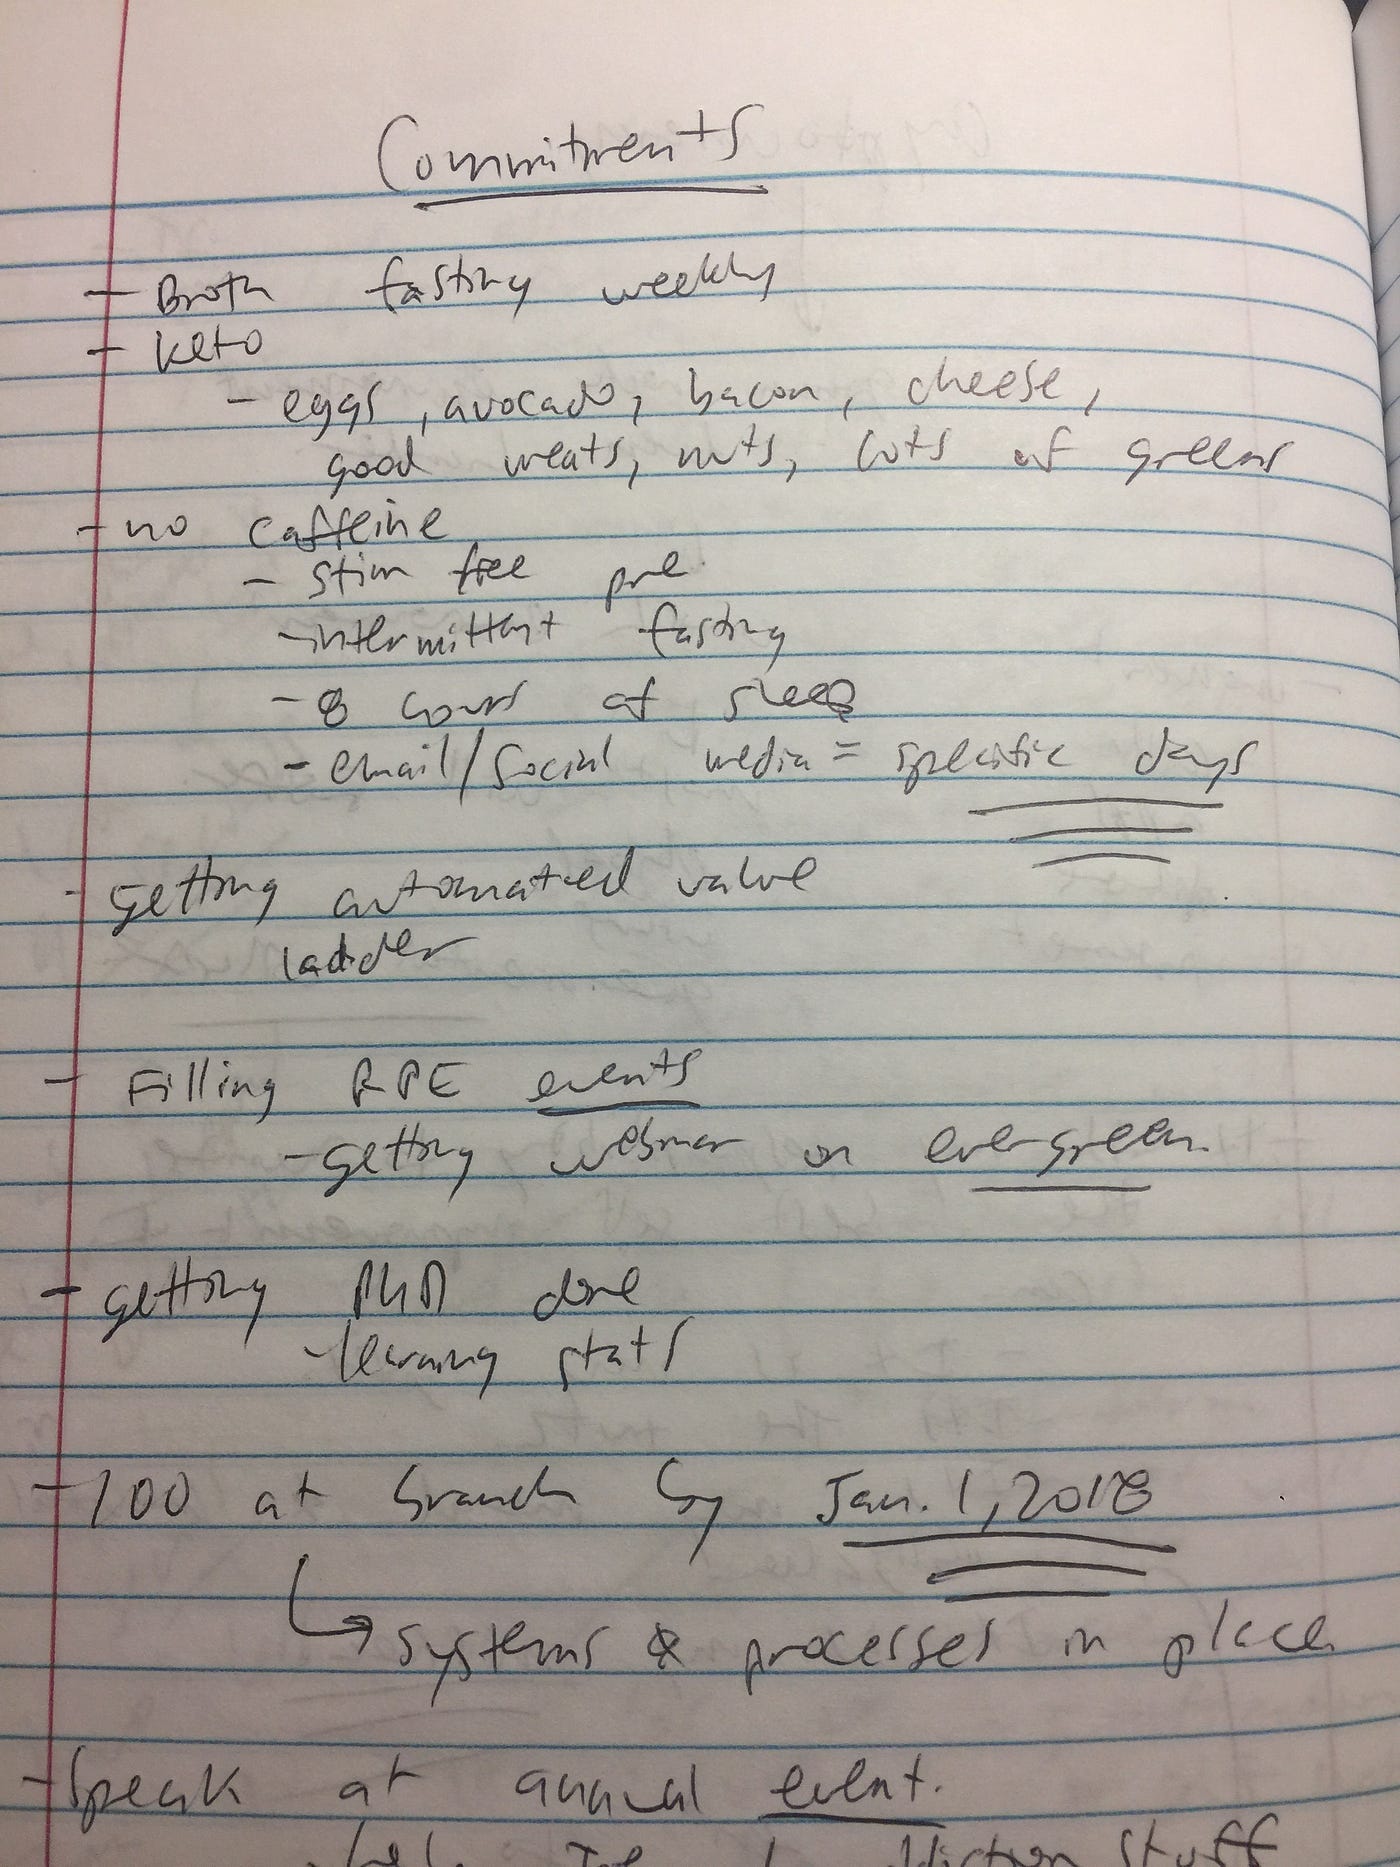 Commitments
- Broth fasting weekly
- Keto
- eggs, avocado, bacon, cheese,
good meats, nuts, lots of greens
- no caffeine
- stim free pre.
- intermittent fasting
- 8 hours of sleep
- email/social media = specific days
- getting automated value
ladder
- Filling RPE events
- getting webinar on evergreen.
- getting PhD done
- learning stats
- 100 at branch by Jan. 1, 2018
↳ systems & processes in place
- Speak at annual event.
stuff